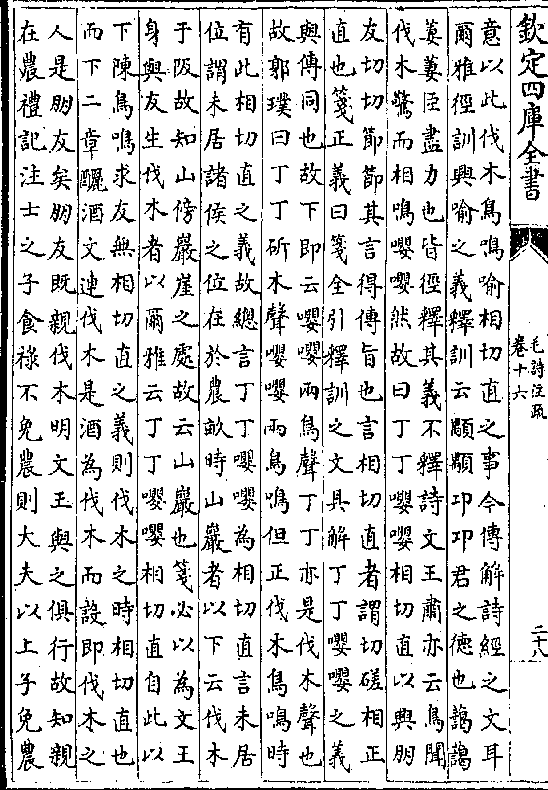 欽定四庫全書
毛詩注疏
卷十六
二十八
意以此伐木鳥鳴喻相切直之事今傳解詩經之文耳
爾雅徑訓興喻之義釋訓云顒顒卬卬君之德也藹藹
萋萋臣盡力也皆徑釋其義不釋詩文王肅亦云鳥聞
伐木驚而相鳴嚶嚶然故曰丁丁嚶嚶相切直以興朋
友切切節節其言得傳旨也言相切直者謂切磋相正
直也箋正義曰箋全引釋訓之文具解丁丁嚶嚶之義
與傳同也故下即云嚶嚶兩鳥聲丁丁亦是伐木聲也
故郭璞曰丁丁斫木聲嚶嚶兩鳥鳴但正伐木鳥鳴時
有此相切直之義故總言丁丁嚶嚶為相切直言未居
位謂未居諸侯之位在於農畝時山巖者以下云伐木
于阪故知山傍巖崖之處故云山巖也箋必以為文王
身與友生伐木者以爾雅云丁丁嚶嚶相切直自此以
下陳鳥鳴求友無相切直之義則伐木之時相切直也
而下二章釃酒文連伐木是酒為伐木而設即伐木之
人是朋友矣朋友既親伐木明文王與之俱行故知親
在農禮記注士之子食祿不免農則大夫以上子免農